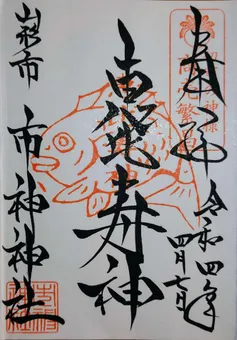 奉拝
令和四年
四月七日
恵毘寿神
山形市
市神神社
商売繁昌